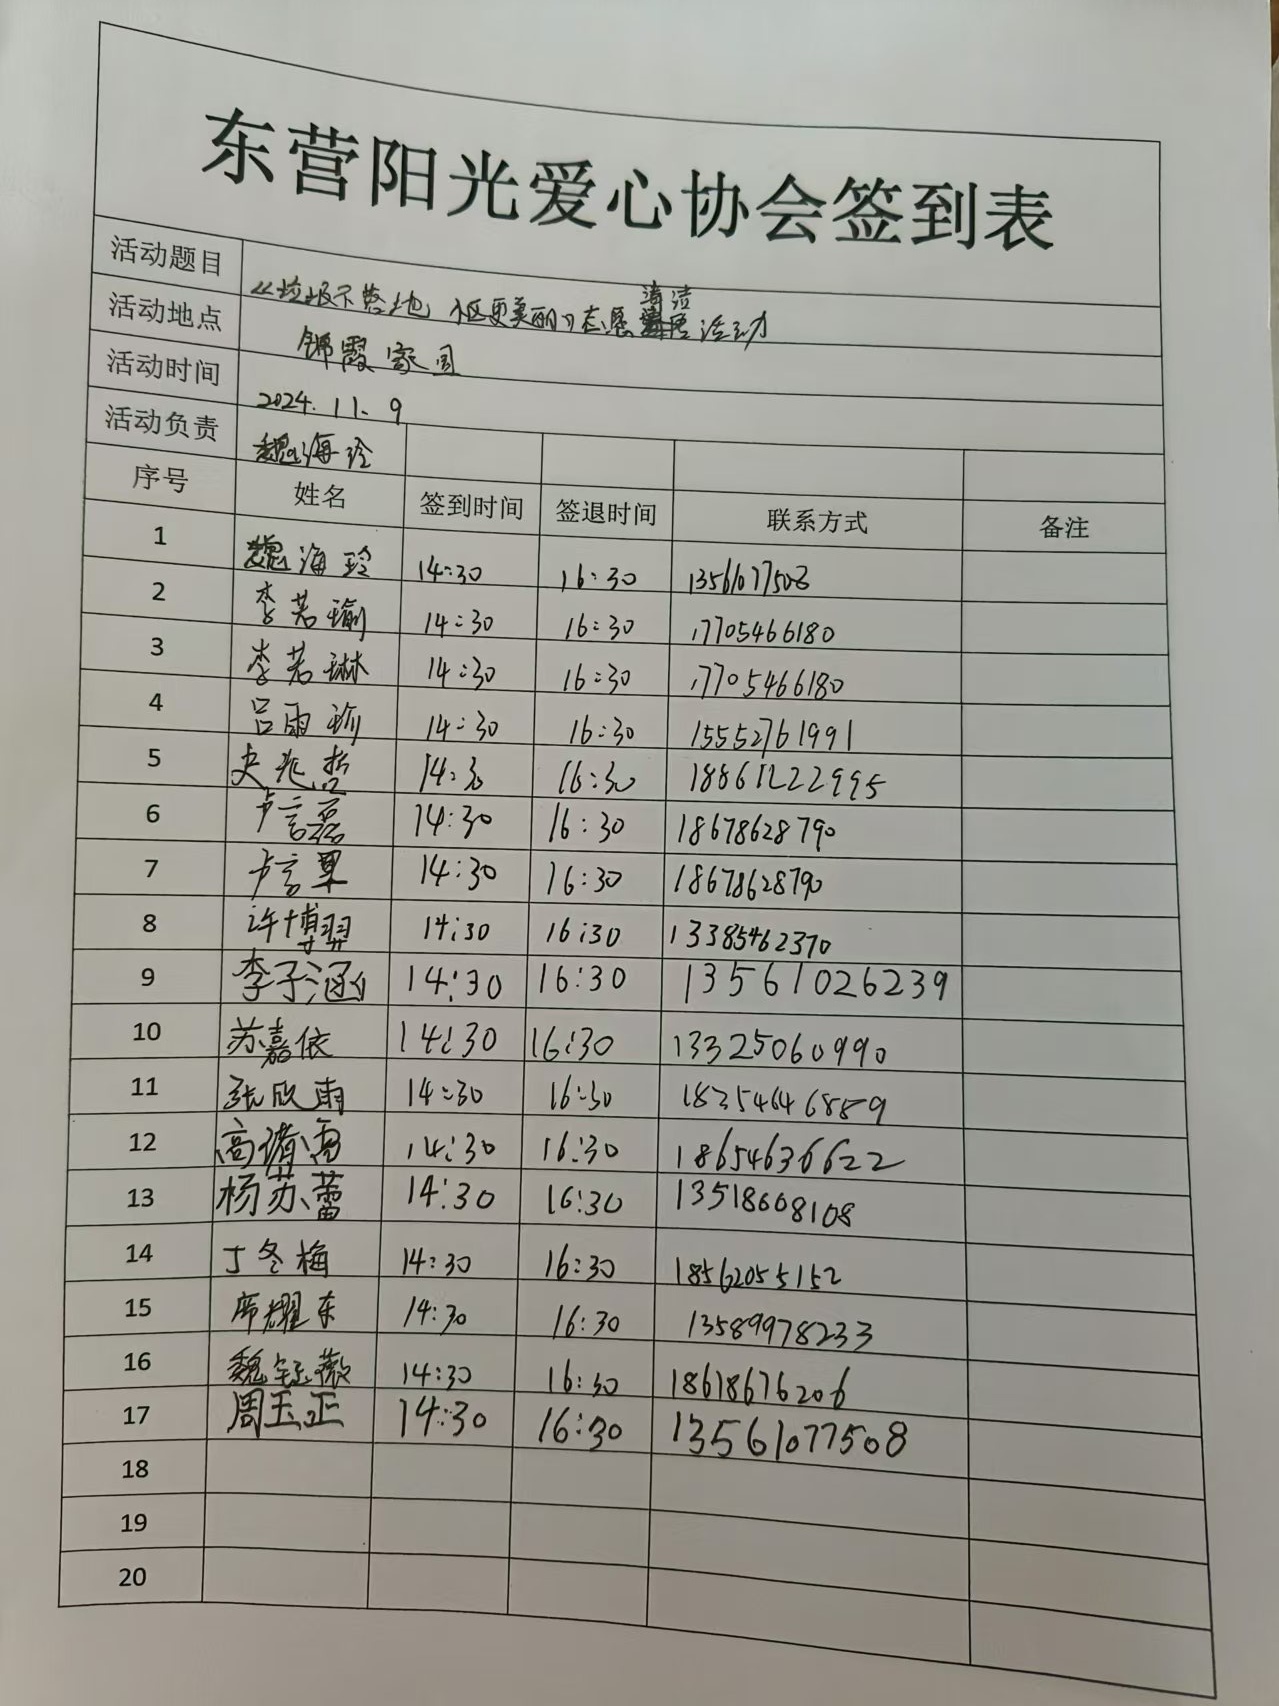 东营阳光爱心协会签到表
活动题目 《垃圾不落地 社区更美丽》志愿清洁活动
活动地点 锦霞家园
活动时间 2024.11.9
活动负责 魏海玲
序号 姓名 签到时间 签退时间 联系方式 备注
1 魏海玲 14:30 16:30 13561077508
2 李若瑜 14:30 16:30 17705466180
3 李若琳 14:30 16:30 17705466180
4 吕雨瑜 14:30 16:30 15552761991
5 史兆哲 14:30 16:30 18861222995
6 卢言磊 14:30 16:30 18678628790
7 卢言果 14:30 16:30 18678628790
8 许博羿 14:30 16:30 13385462370
9 李子涵 14:30 16:30 13561026239
10 苏嘉依 14:30 16:30 13325060990
11 张欣雨 14:30 16:30 18254646889
12 高 14:30 16:30 18654636622
13 杨苏蕾 14:30 16:30 13518608108
14 丁冬梅 14:30 16:30 18562055152
15 席耀东 14:30 16:30 13589978233
16 魏钰薇 14:30 16:30 18618676206
17 周玉正 14:30 16:30 13561077508
18
19
20